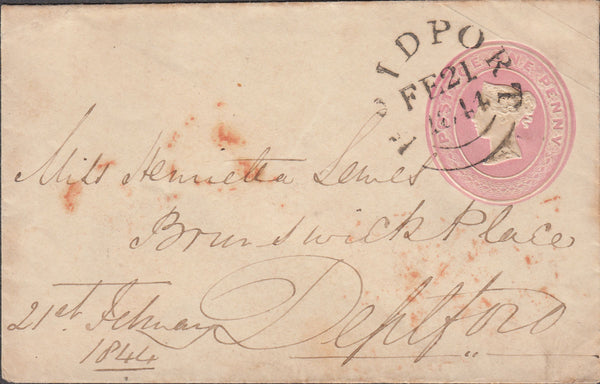 BRIDPORT
FE 21
1844
POSTAGE ONE PENNY
Miss Henrietta Lewes
Brunswick Place
Deptford
21st February
1844